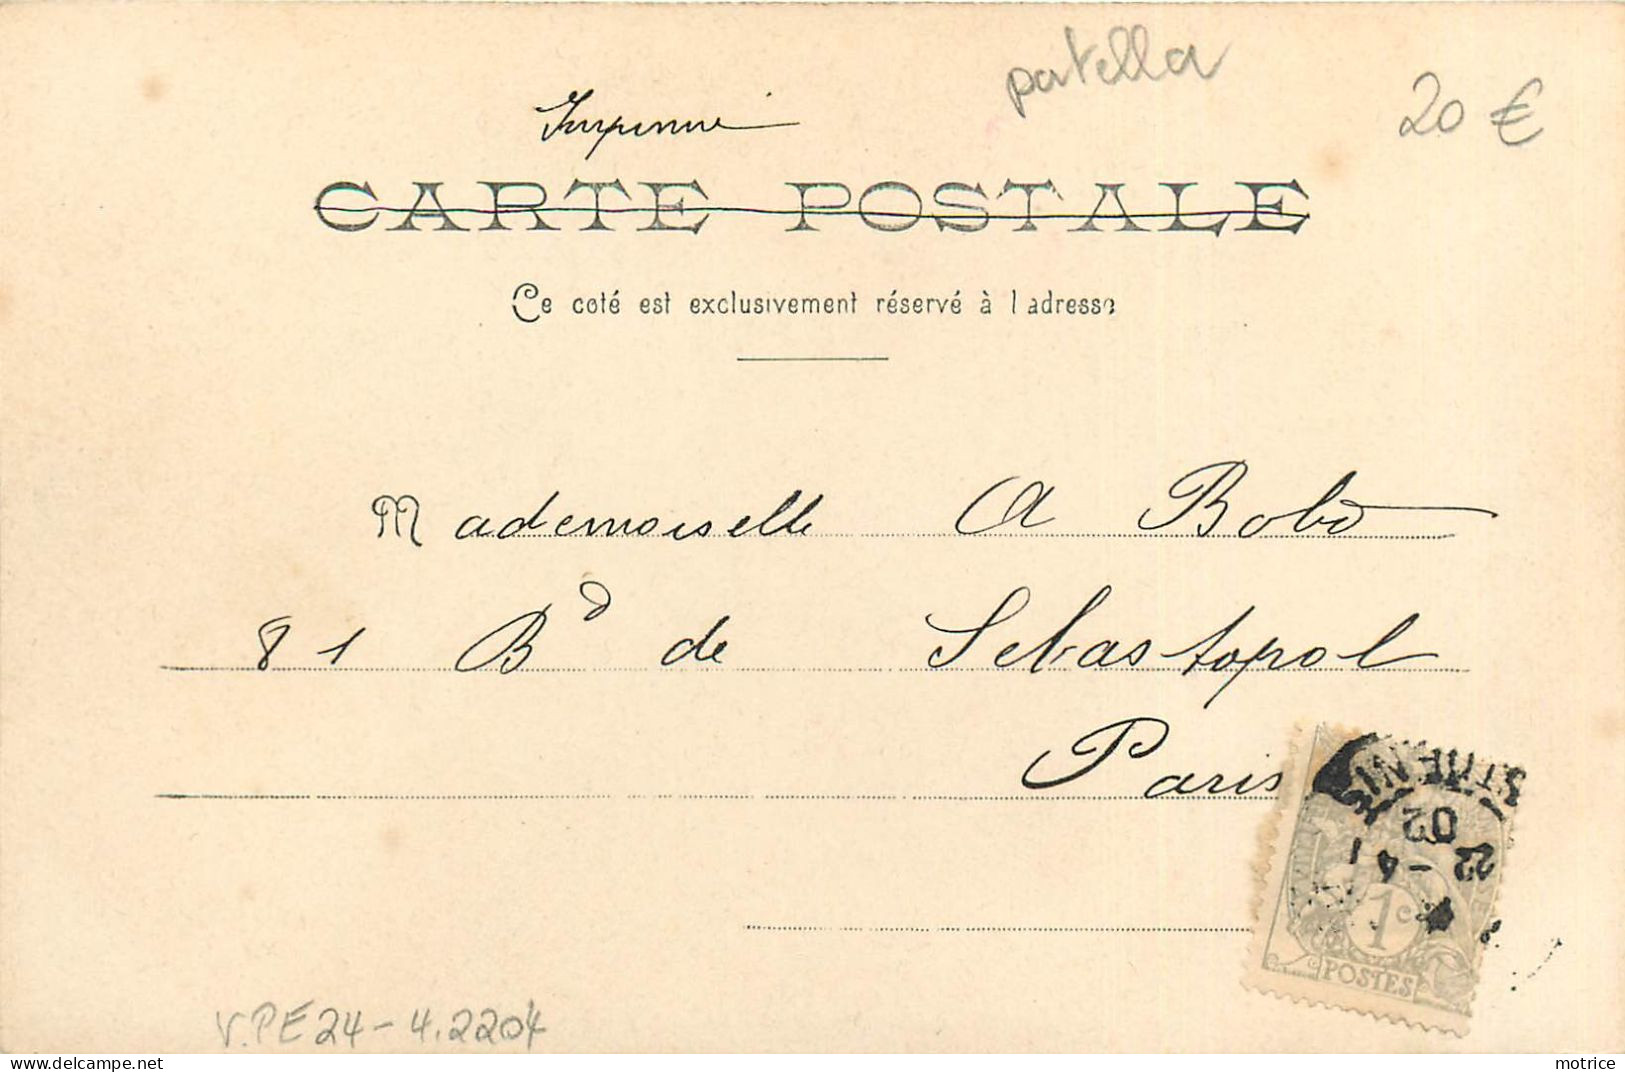 patella
20 €
Imprimé
CARTE POSTALE
Ce coté est exclusivement réservé à l'adresse
Mademoiselle A Bobo
81 Bd de Sebastopol
Paris
02
22 - 4
1c
POSTES
V.PE24-4.2204
motrice